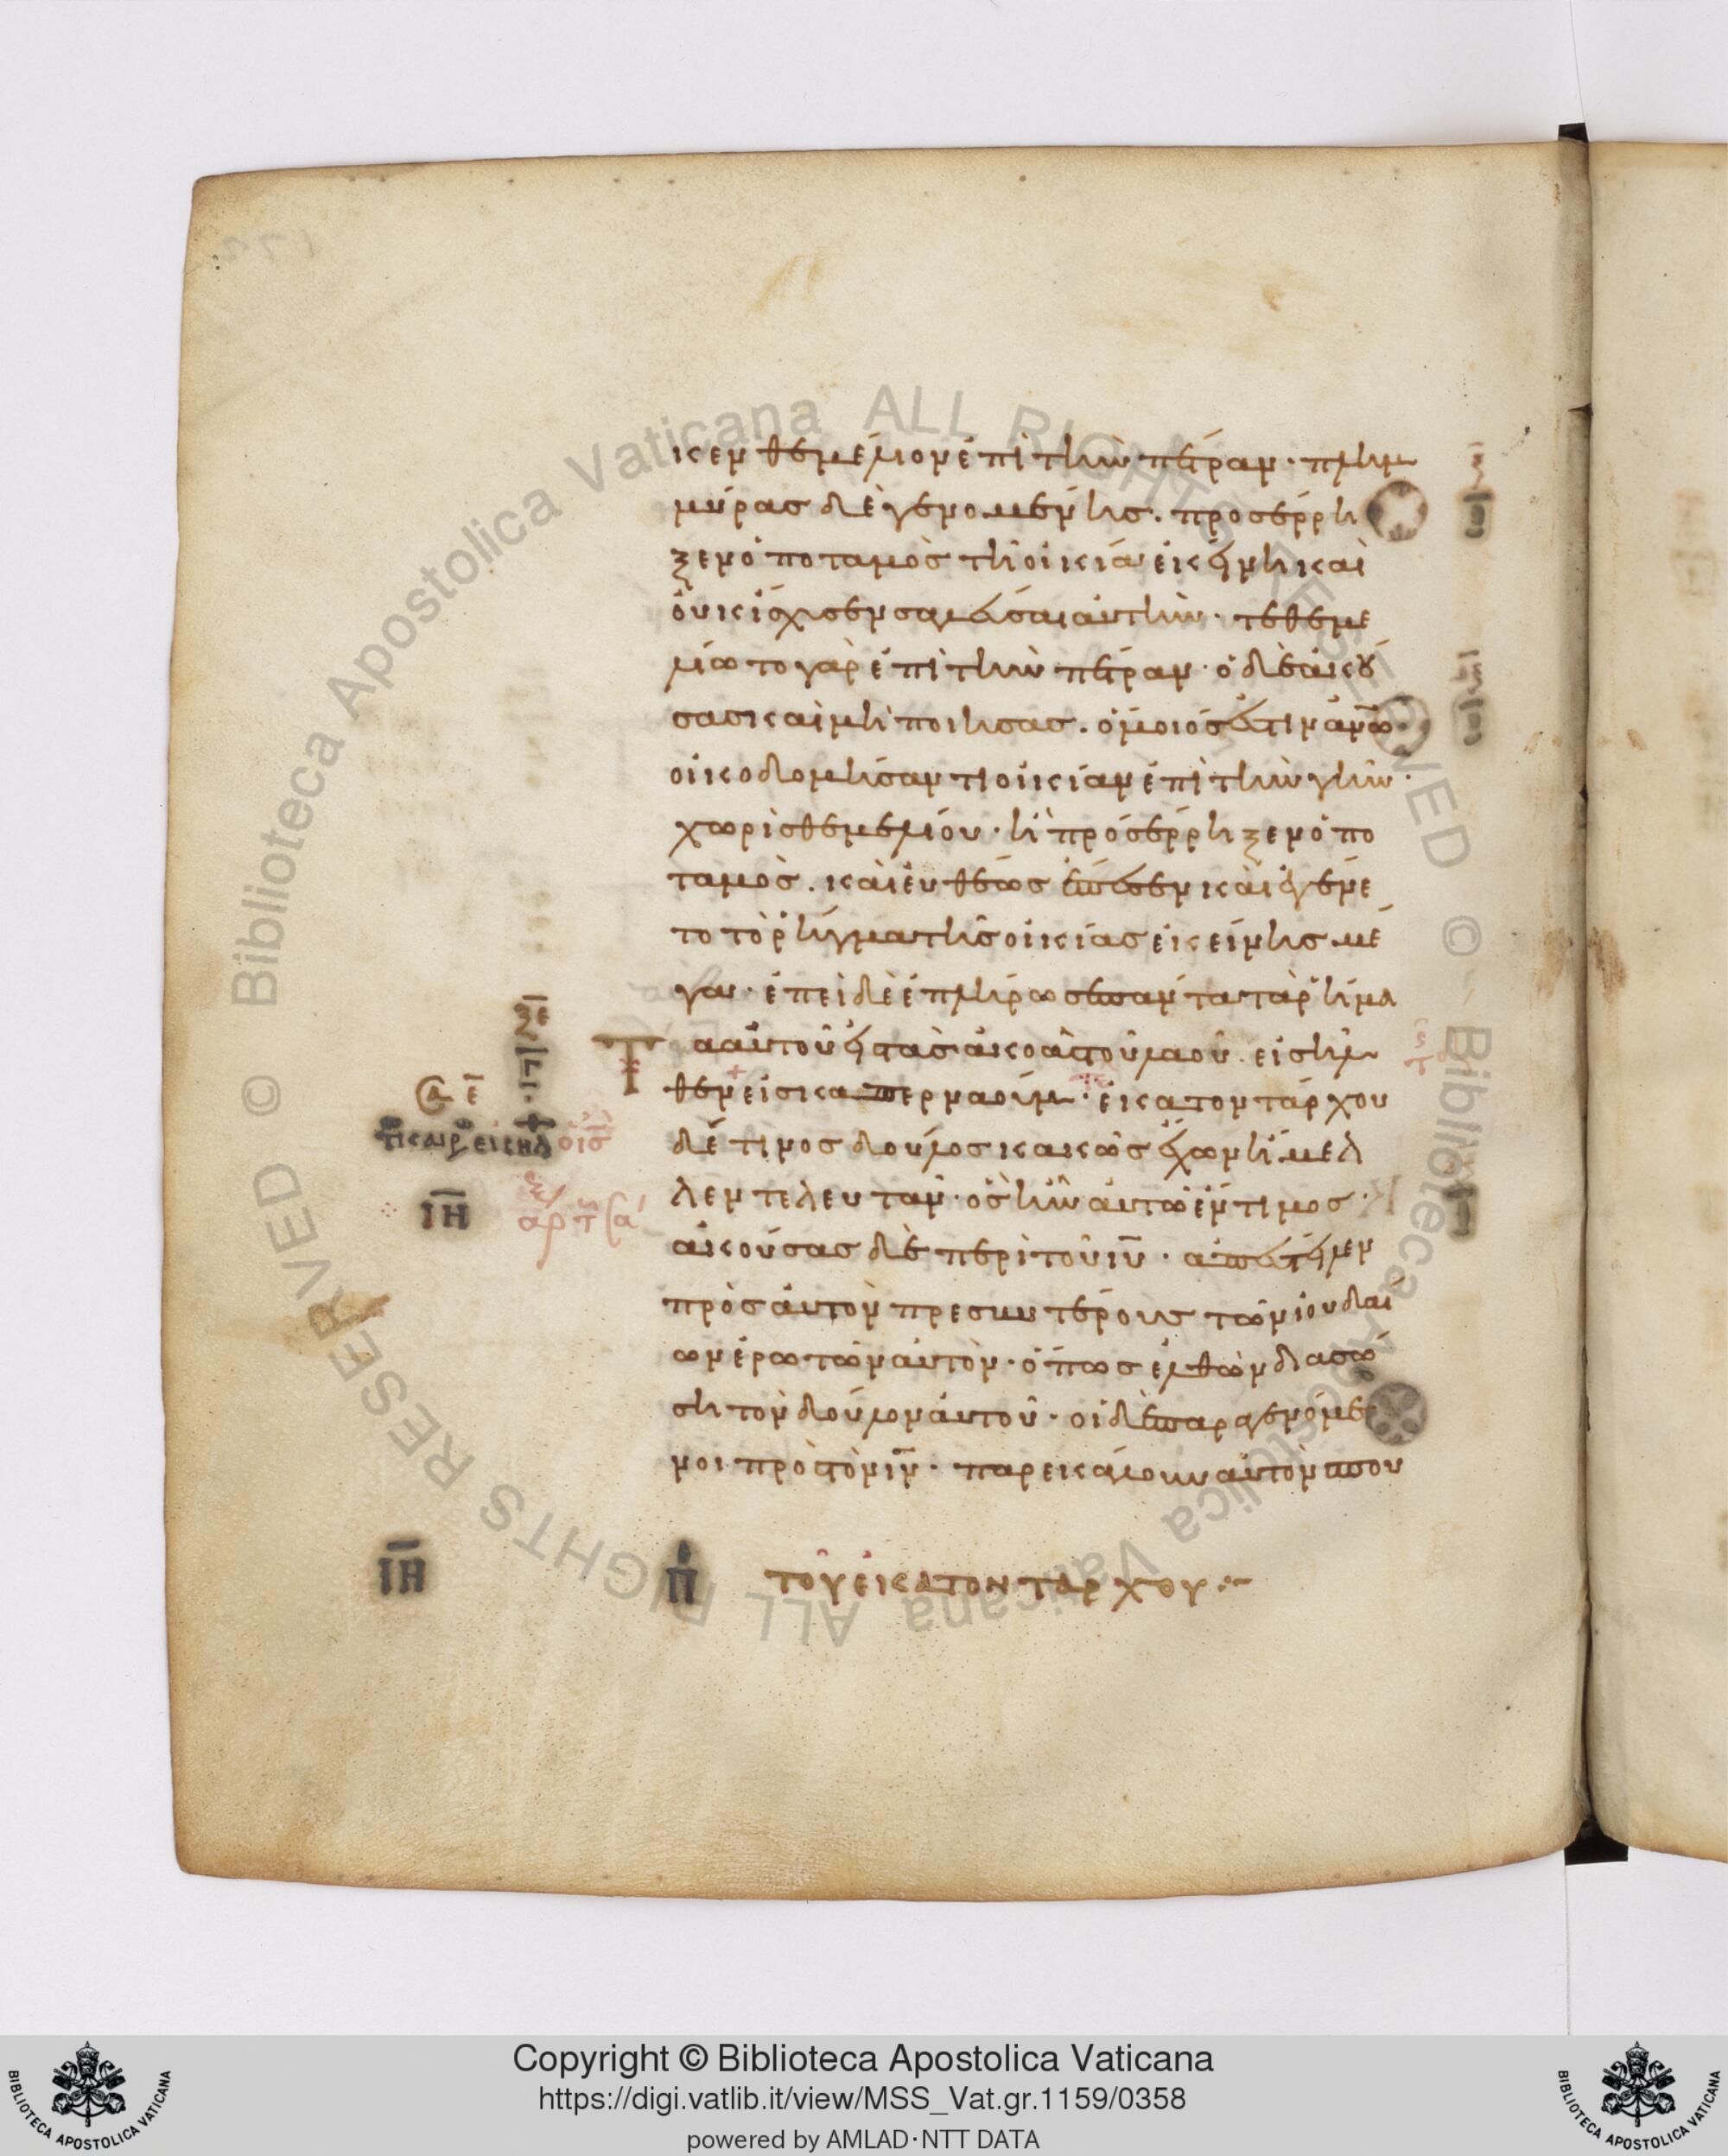 κεν θεμέλιον ἐπὶ τὴν πέτραν· πλημ
μύρας δὲ γενομένης. προσέρρη
ξεν ὁ ποταμὸς τῆ οἰκία ἐκείνη καὶ
ὀυκ ἴσχυσεν σαλεῦσαι ἀυτήν· τεθεμε
λίωτο γὰρ ἐπὶ τὴν πέτραν· ὁ δὲ ἀκού
σας καὶ μὴ ποιήσας. ὅμοιός ἐστιν ἀνω
οἰκοδομήσαντι οἰκίαν ἐπὶ τὴν γῆν·
χωρὶς θεμελίου· ἧ προσέρρηξεν ὁ πο
ταμὸς. καὶ ἐυθέως ἔπεσεν καὶ ἐγένε
το τὸ ῥῆγμα τῆς οἰκίας ἐκείνης μέ
γα· ἐπεὶ δὲ ἐπλήρωσε πάντα τὰ ῥήμα
Τ τα ἀυτοῦ εἰς τὰς ἀκοὰς τοῦ λαοῦ. εἰσῆλ
θεν εἰς καπερναούμ· ἑκατοντάρχου
δέ τινος δοῦλος κακῶς ἔχων ἤμελ
λεν τελευτᾶν· ὃς ἦν ἀυτῶ ἔντιμος·
ἀκούσας δὲ περὶ τοῦ ιυ· ἀπέστειλεν
πρὸς ἀυτὸν πρεσβυτέρους τῶν ἰουδαί
ων ἐρωτῶν ἀυτὸν· ὅπως ἐλθὼν διασώ
ση τὸν δοῦλον ἀυτοῦ· οἱ δὲ παραγενόμε
νοι πρὸς τὸν ιν· παρεκάλουν ἀυτὸν σπου
ξε
ΙΗ
ΙΗ Π τοῦ ἑκατοντάρχου
Copyright © Biblioteca Apostolica Vaticana
https://digi.vatlib.it/view/MSS_Vat.gr.1159/0358
powered by AMLAD·NTT DATA
BIBLIOTECA APOSTOLICA VATICANA
BIBLIOTECA APOSTOLICA VATICANA
© Biblioteca Apostolica Vaticana ALL RIGHTS RESERVED
© Biblioteca Apostolica Vaticana ALL RIGHTS RESERVED